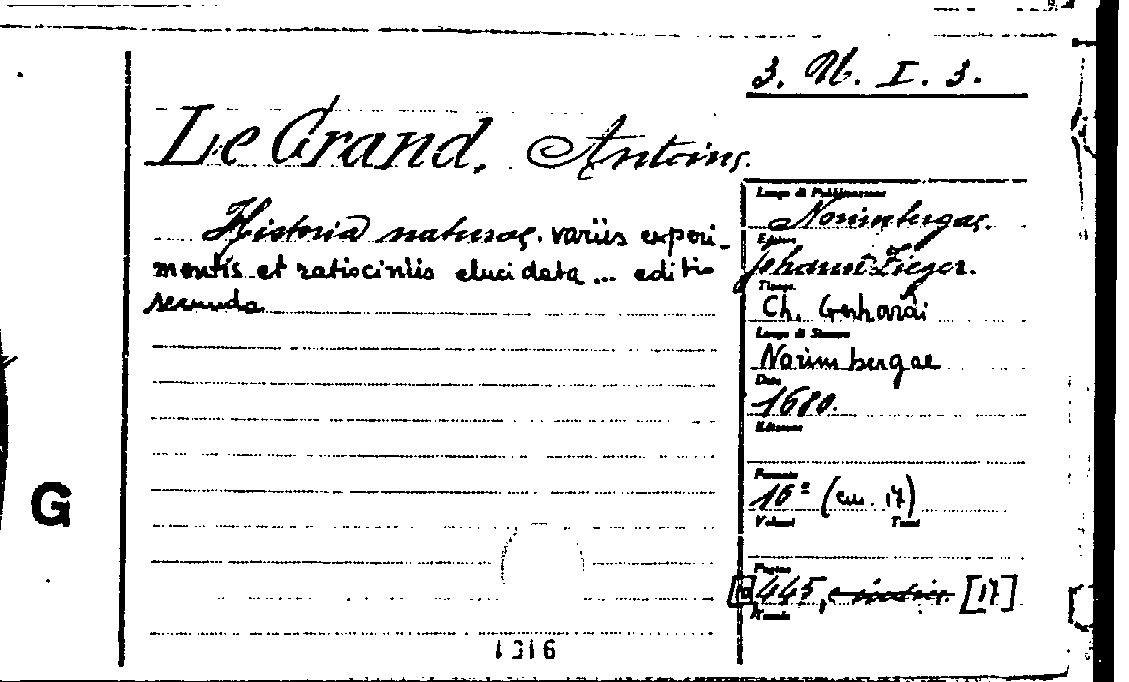 3. N. I. 3.
Le Grand, Antoine.
Historia naturae. variis experi-
mentis et ratiociniis elucidata ... editio
secunda
Luogo di Pubblicazione
Norimbergae.
Editore
Johann Zieger.
Tipogr.
Ch. Gerhardi
Luogo di Stampa
Norimbergae
Data
1680.
Edizione
Formato
16º (cm. 17)
Volumi Tomi
Pagine
445, e indici. [17]
G
1316